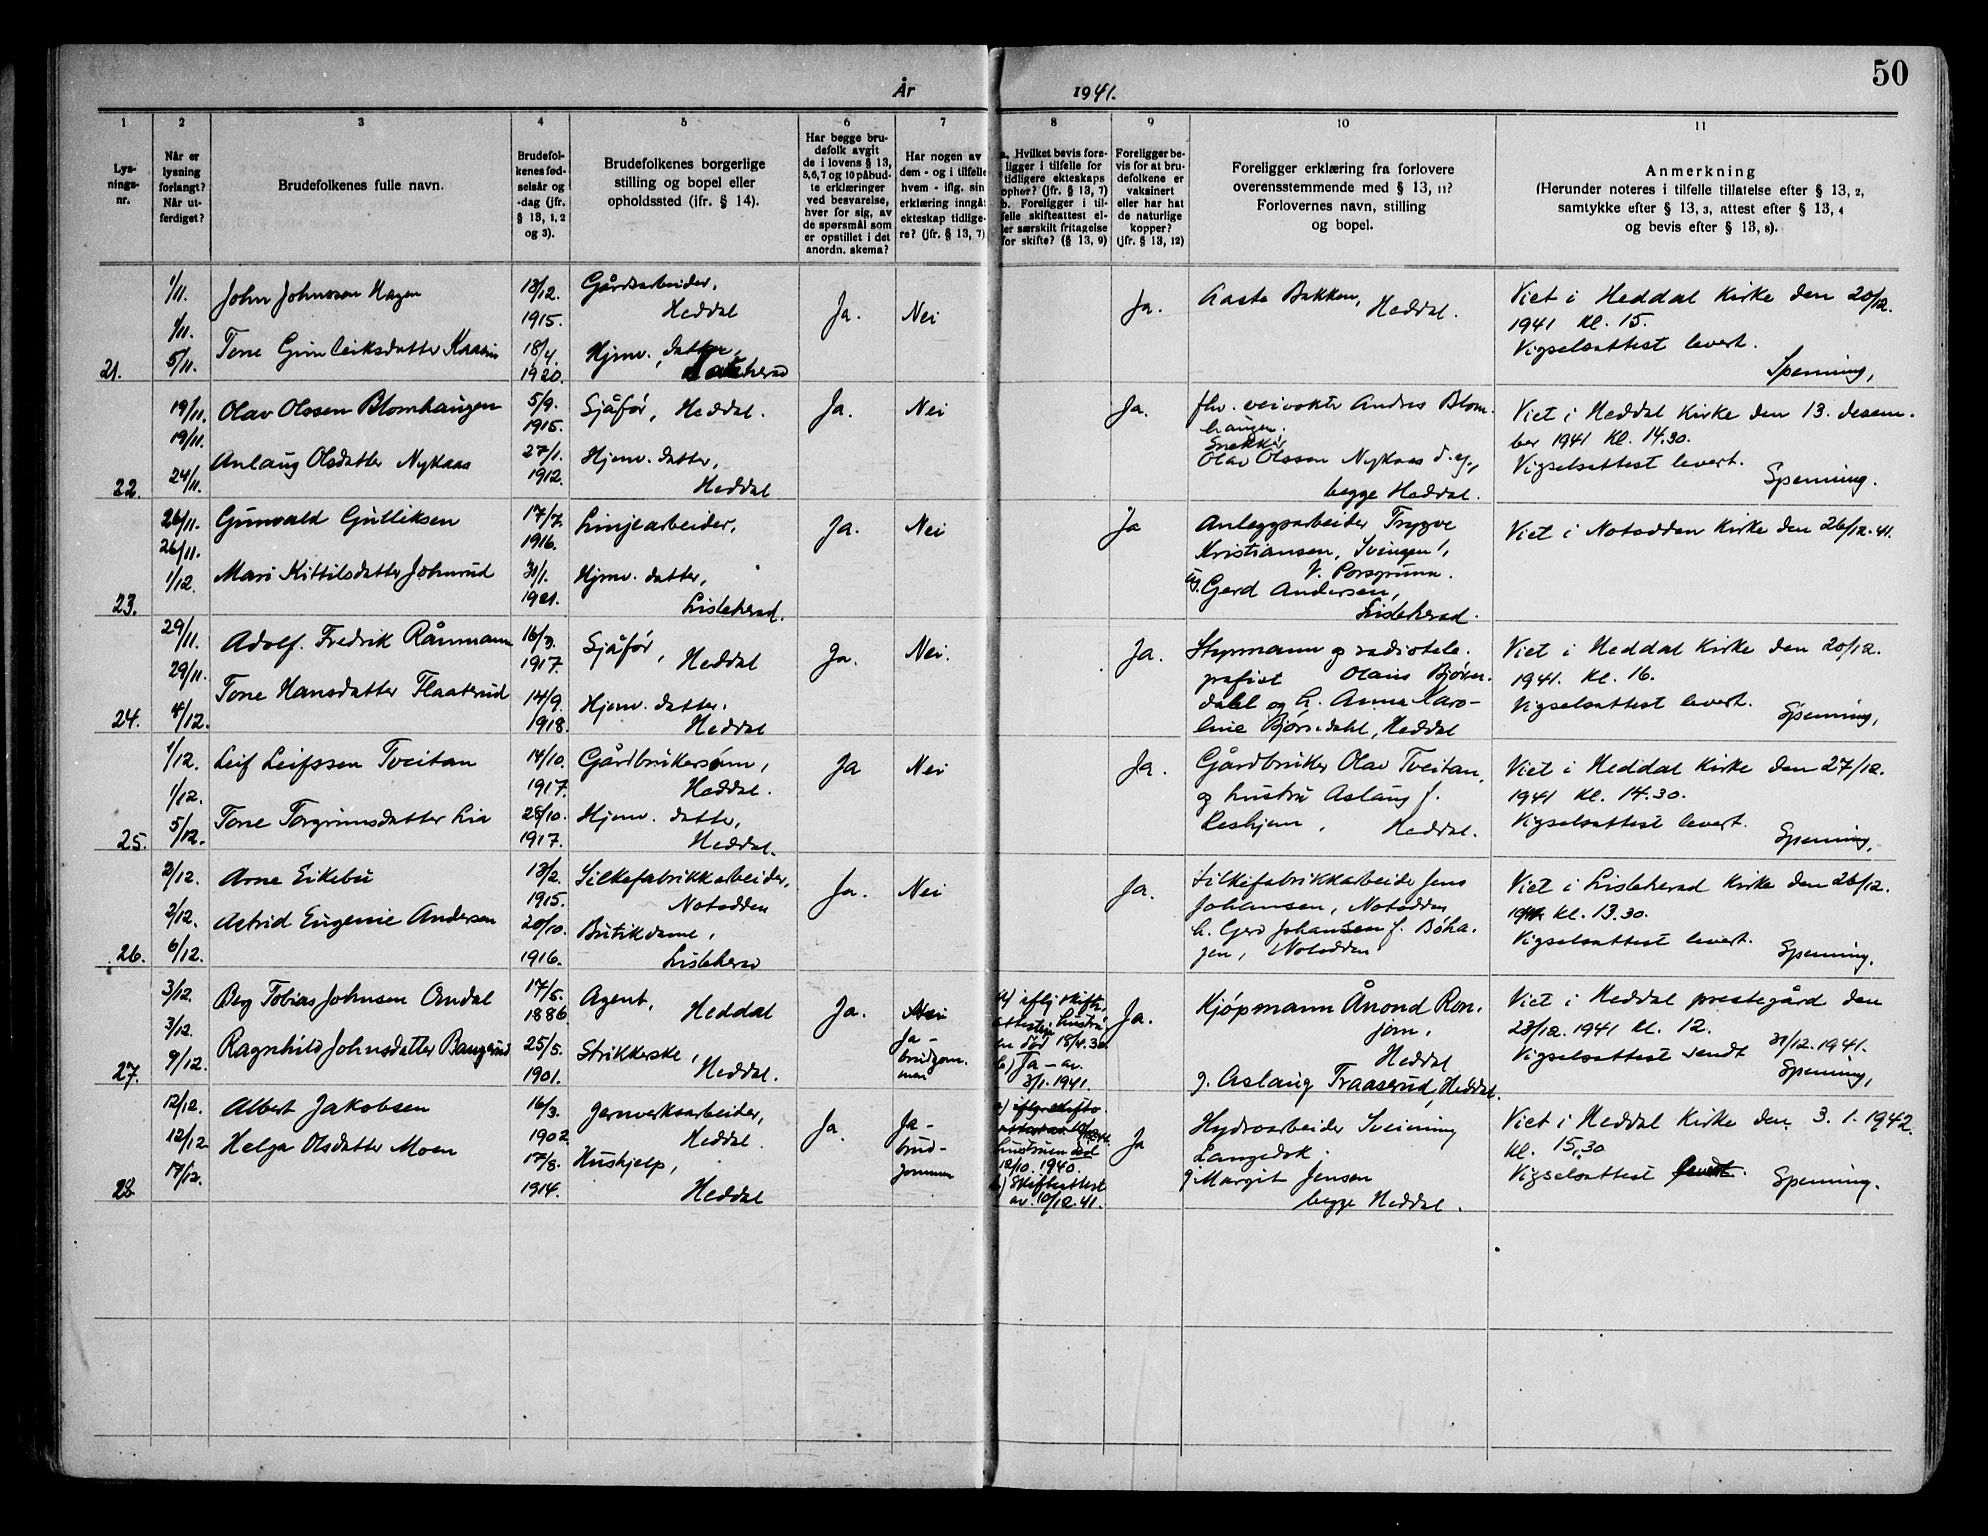 50
År 1941.
1 2 3 4 5 6 7 8 9 10 11
Lys-
nings-
nr.
Når er
lysning
forlangt?
Når ut-
ferdiget?
Brudefolkenes fulle navn.
Brudefol-
kenes fød-
selsår og
-dag (jfr.
§ 13, 1, 2
og 3).
Brudefolkenes borgerlige
stilling og bopel eller
opholdssted (jfr. § 14).
Har begge bru-
defolk avgit
de i lovens § 13,
5, 6, 7 og 10 påbud-
te erklæringer
ved besvarelse,
hver for sig, av
de spørsmål som
er opstillet i det
anordn. skema?
Har nogen av
dem - og i tilfelle
hvem - iflg. sin
erklæring inngåt
ekteskap tidlige-
re? (jfr. § 13, 7)
a. Hvilket bevis fore-
ligger i tilfelle for
tidligere ekteskaps
ophør? (jfr. § 13, 7)
b. Foreligger i til-
felle skifteattest el-
ler særskilt fritagelse
for skifte? (§ 13, 9)
Foreligger be-
vis for at bru-
defolkene er
vaksinert
eller har hat
de naturlige
kopper?
(jfr. § 13, 12)
Foreligger erklæring fra forlovere
overensstemmende med § 13, 11?
Forlovernes navn, stilling
og bopel.
Anmerkning
(Herunder noteres i tilfelle tillatelse efter § 13, 2,
samtykke efter § 13, 3, attest efter § 13, 4
og bevis efter § 13, 8).
21.
1/11.
1/11.
5/11.
John Johnsen Hagen
Tone Gunleiksdatter Kaasin
13/12.
1915.
18/4.
1920.
Gårdsarbeider,
Heddal
Hjemv. datter,
Ja.
Nei
Ja.
Aaste Bakken, Heddal.
Viet i Heddal Kirke den 20/12.
1941 Kl. 15.
Vigselsattest levert.
Spenning,
22.
19/11.
19/11.
24/11.
Olav Olssen Blomhaugen
Anlaug Olsdatter Nykaas
5/9.
1915.
27/1.
1912.
Sjåfør, Heddal.
Hjemv. datter,
Heddal
Ja.
Nei
Ja.
fhv. veivokter Andres Blom-
haugen.
Snekker
Olav Olssen Nykaas d. e.,
begge Heddal.
Viet i Heddal Kirke den 13. desem-
ber 1941 Kl. 14.30.
Vigselsattest levert.
Spenning.
23.
26/11.
26/11.
1/12.
Gunvald Gulliksen
Mari Kittilsdatter Johnrud
17/7.
1916.
31/1.
1921.
Linjearbeider,
Hjemv. datter,
Lisleherad.
Ja.
Nei
Ja
Anleggsarbeider Trygve
Kristiansen,
V. Porsgrunn.
og. Gerd Andersen,
Lisleherad.
Viet i Notodden Kirke den 26/12.41.
24.
29/11.
29/11.
4/12.
Adolf. Fredrik Rånmann
Tone Hansdatter Flaaterud
16/3.
1917.
14/9.
1918.
Sjåfør, Heddal
Hjemv. datter.
Heddal
Ja.
Nei.
Ja.
Styrmann og radiotele-
grafist Olaus Bjørn-
dahl og h. Anna Karo-
line Bjørndahl, Heddal
Viet i Heddal Kirke den 20/12.
1941. Kl. 16.
Vigselsattest levert.
Spenning,
25.
1/12.
1/12.
5/12.
Leif Leifssen Tveitan
Tone Torgrimsdatter Lia
14/10.
1917.
28/10.
1917.
Gårdbrukersønn,
Heddal.
Hjemv. datter,
Heddal.
Ja
Nei
Ja.
Gårdbruker Olav Tveitan,
og hustru Aslaug f.
Heddal.
Viet i Heddal Kirke den 27/12.
1941 Kl. 14.30.
Vigselsattest levert.
Spenning,
26.
2/12.
2/12.
6/12.
Arne Eikebu
Astrid Eugenie Andersen
13/2.
1915.
20/10.
1916.
Silkefabrikkarbeider,
Notodden
Butikdame,
Lisleherad
Ja.
Nei
Ja.
Silkefabrikkarbeider Jens
Johansen, Notodden
h. Gerd Johansen f. Bøha-
gen, Notodden
Viet i Lisleherad Kirke den 26/12.
1941 Kl. 13.30.
Vigselsattest levert.
Spenning,
27.
3/12.
3/12.
9/12.
Berg Tobias Johnsen Omdal
Ragnhild Johnsdatter Baugerud
17/5.
1886.
25/5.
1901.
Agent, Heddal
Strikkerske,
Heddal.
Ja.
Nei
Ja -
brudgom-
men
a) iflg. skifte-
attest hustru
død 18/4.30.
b) Ja - av
3/1.1941.
Ja.
Kjøpmann Ånond Ron-
jom,
Heddal
g. Aslaug Traaserud, Heddal.
Viet i Heddal prestegård den
23/12.1941 Kl. 12.
Vigselsattest sendt 31/12.1941.
Spenning,
28.
12/12.
12/12.
17/12.
Albert Jakobsen
Helga Olsdatter Moen
16/3.
1902.
17/8.
1914.
Jernverksarbeider,
Heddal.
Hushjelp,
Heddal
Ja.
Ja -
brud-
gommen
a) iflg. skifte-
hustruen død
12/10.1940.
b) Skifteattest
av. 10/12.41.
Ja
Hydroarbeider Sveinung
Langedok.
g. Margit Jensen
begge Heddal.
Viet i Heddal Kirke den 3.1.1942.
Kl. 15.30
Vigselsattest
Spenning.